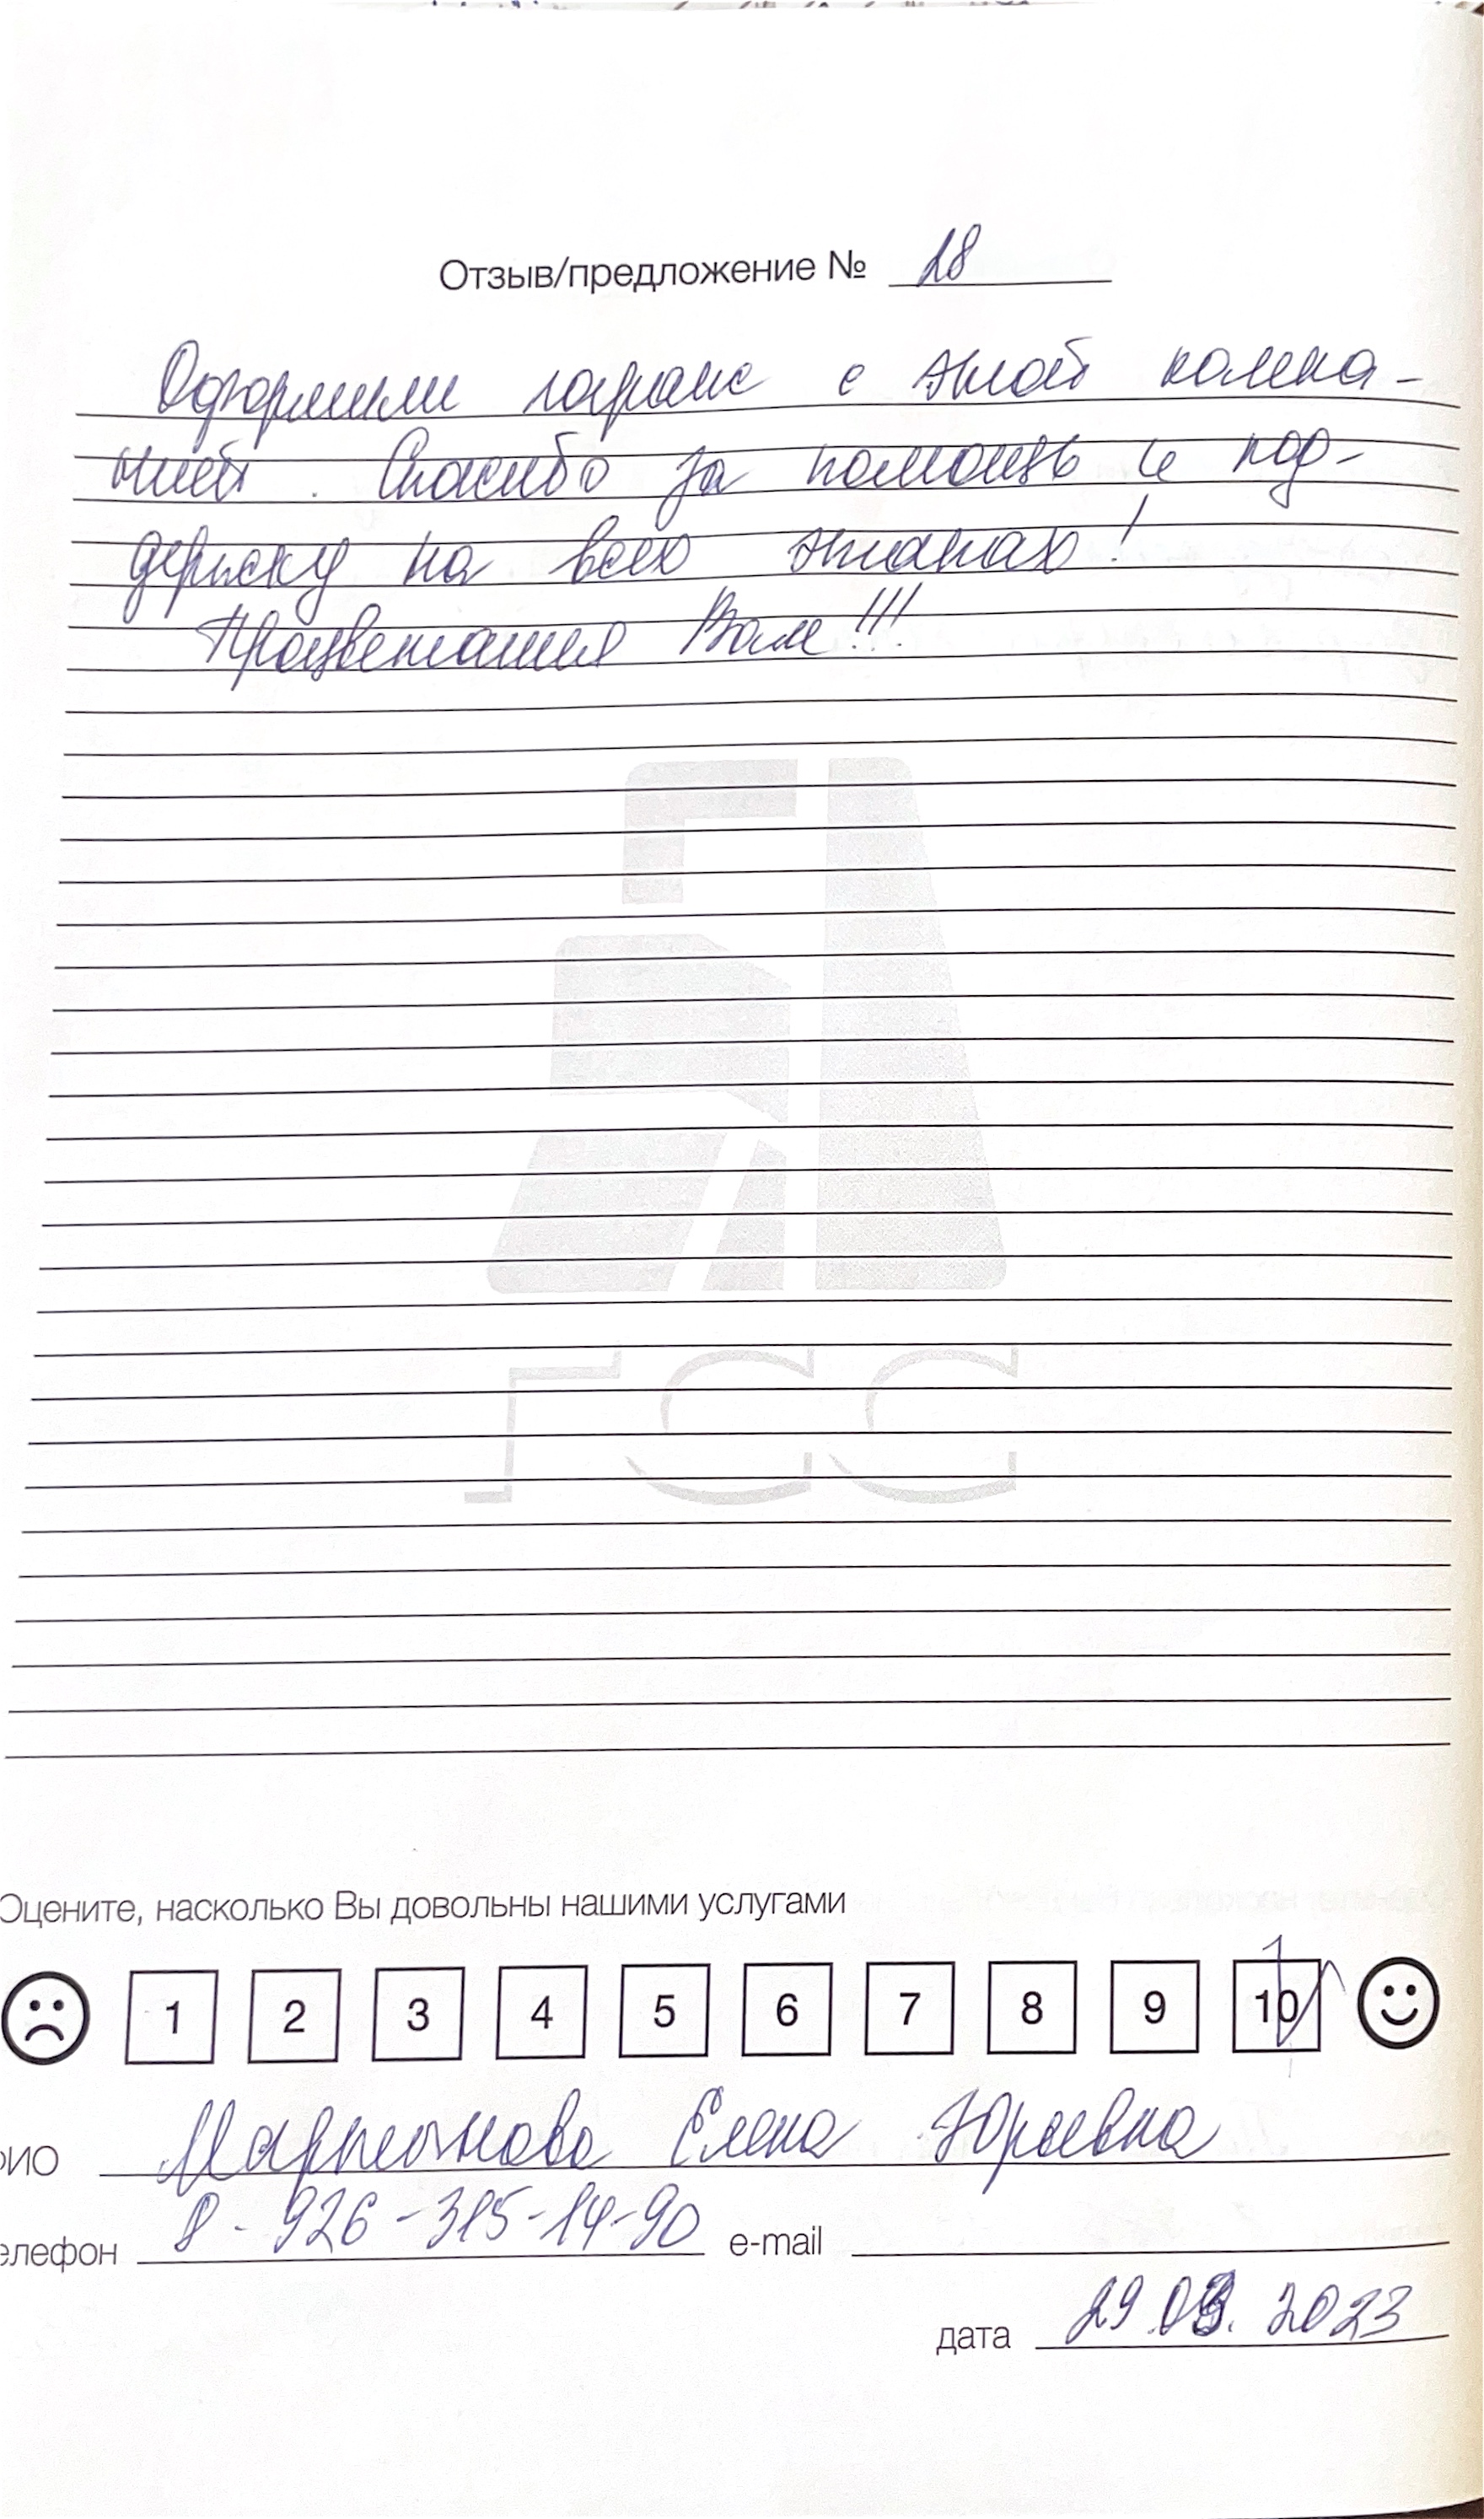 Отзыв/предложение № 28
Оформили гараж с этой компа-
нией. Спасибо за помощь и под-
держку на всех этапах!
Процветания Вам!!!
ГСС
Оцените, насколько Вы довольны нашими услугами
1 2 3 4 5 6 7 8 9 10
ФИО Мартынова Елена Юрьевна
елефон 8-926-315-14-90 e-mail
дата 29.03.2023